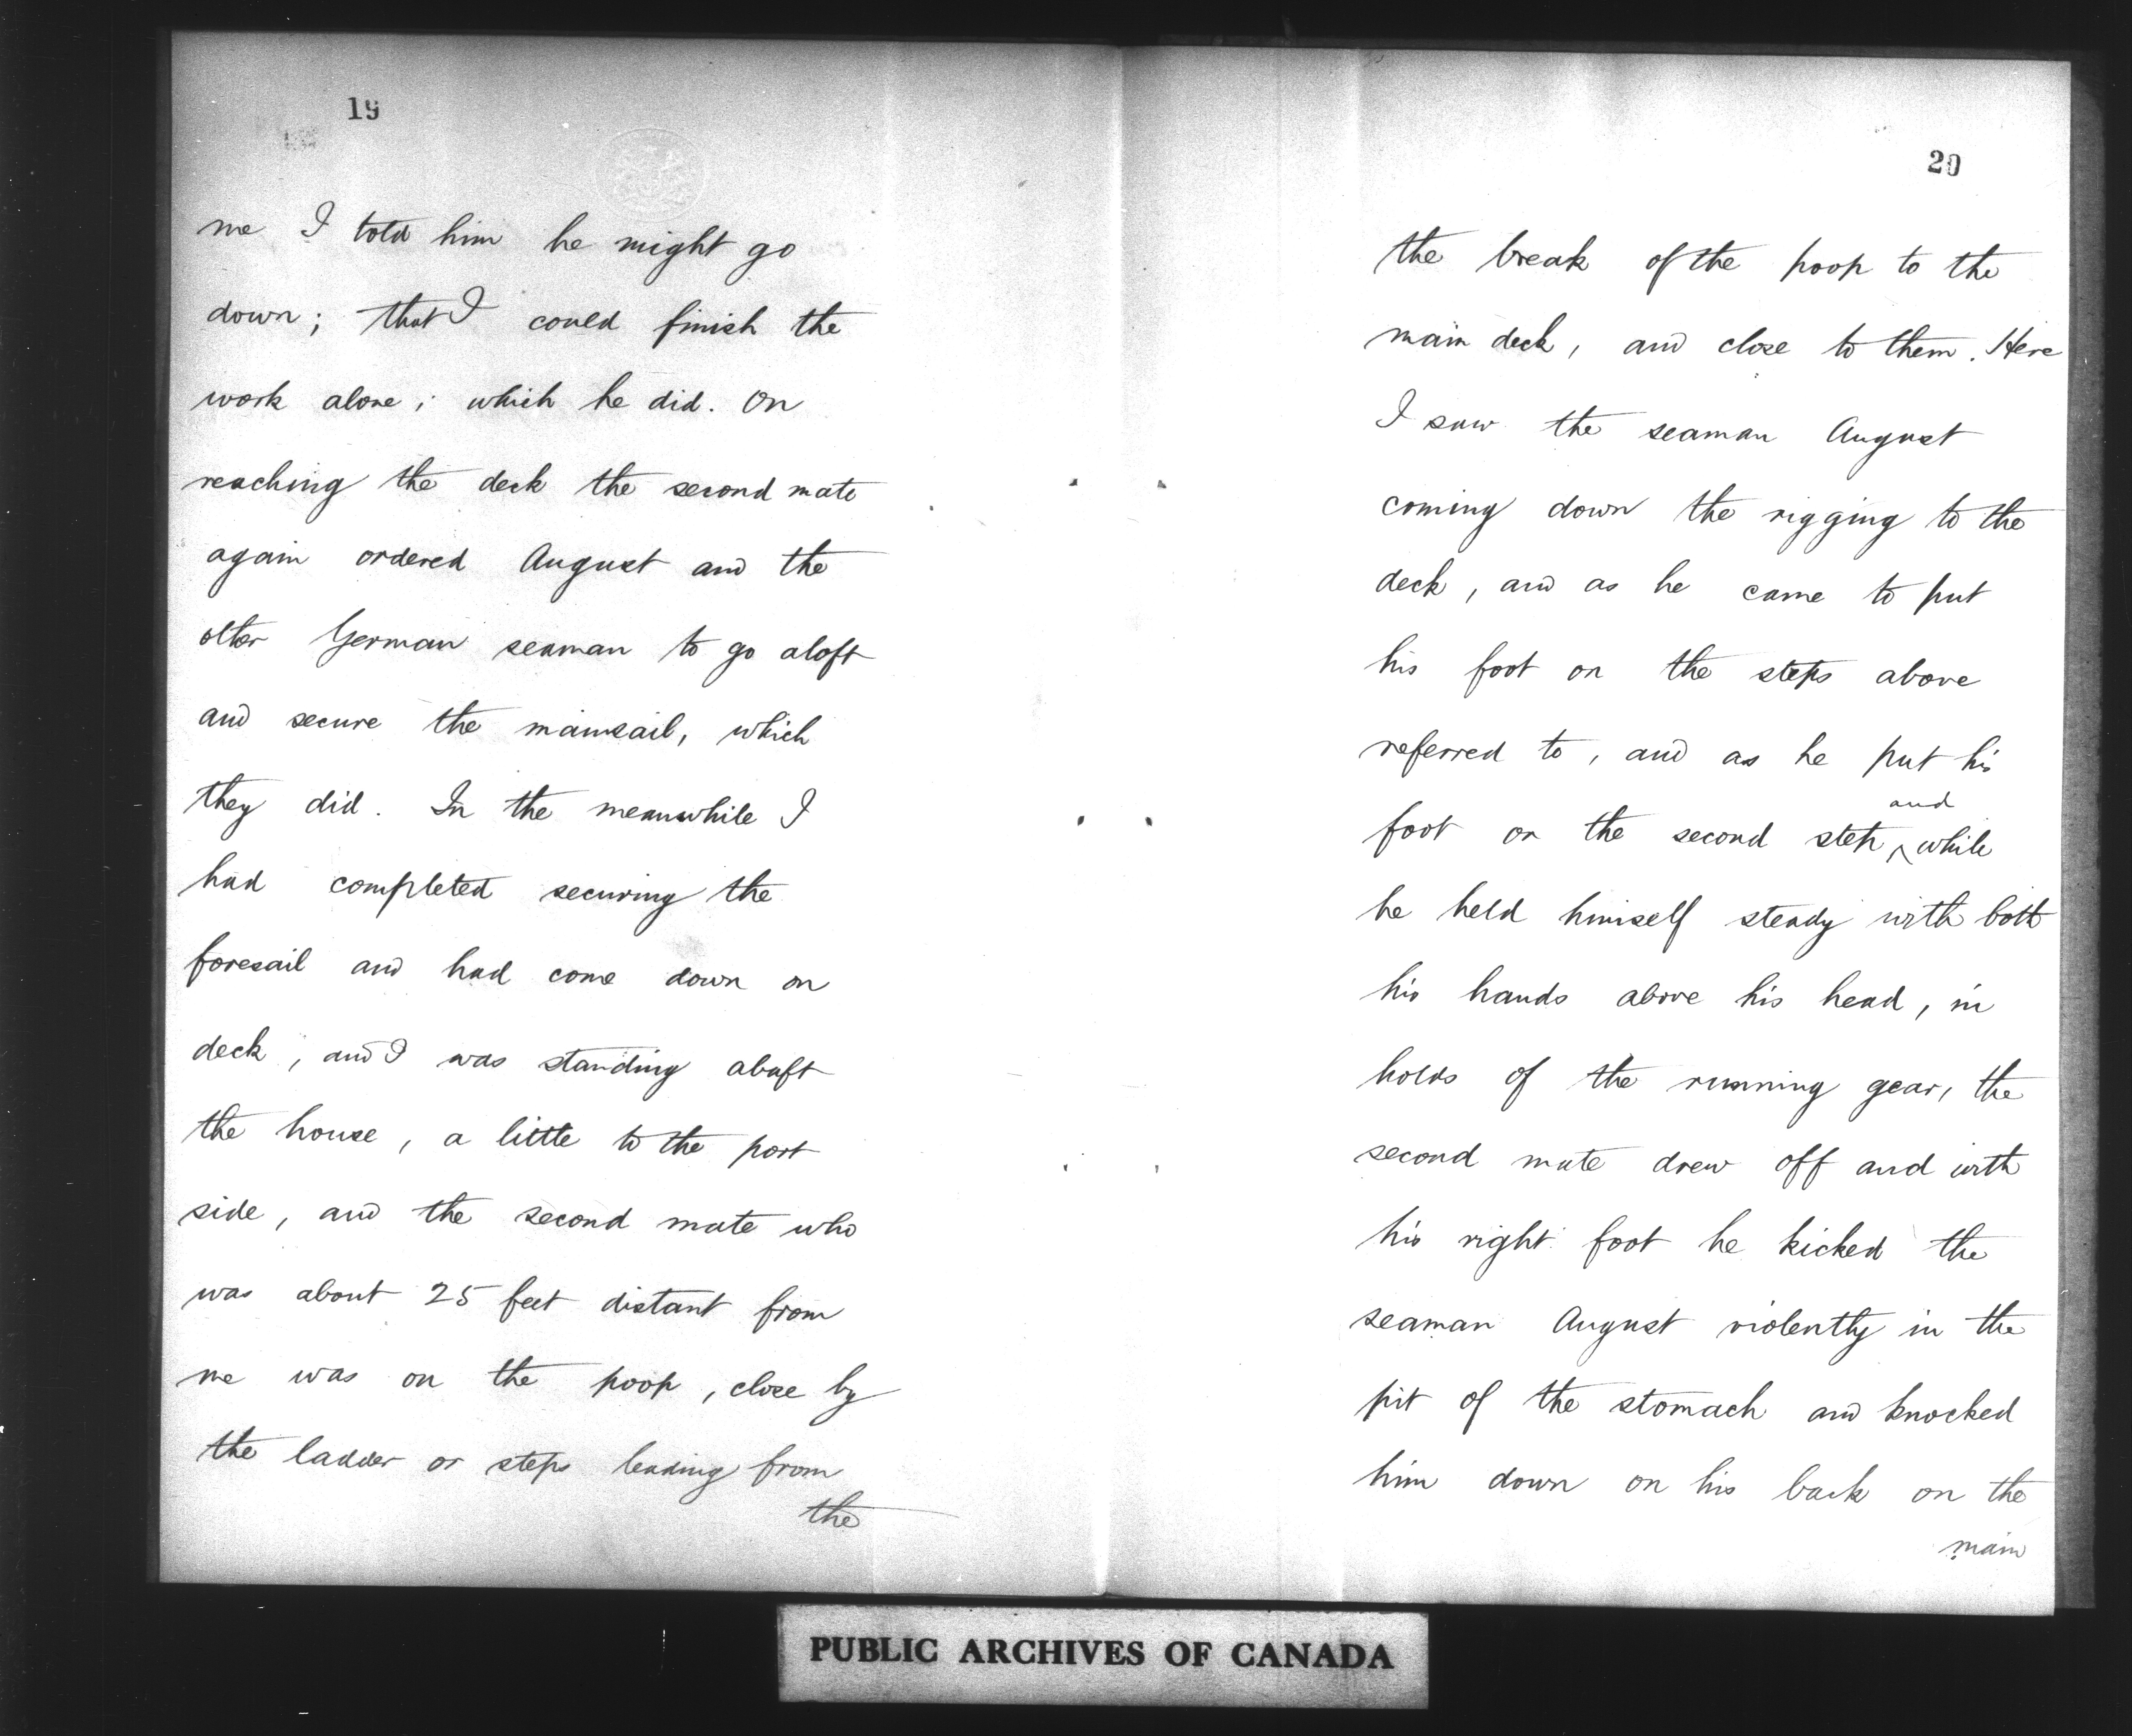 19
me I told him he might go
down; that I could finish the
work alone; which he did. On
reaching the deck the second mate
again ordered August and the
other German seaman to go aloft
and secure the mainsail, which
they did. In the meanwhile I
had completed securing the
foresail and had come down on
deck, and I was standing abaft
the house, a little to the port
side, and the second mate who
was about 25 feet distant from
me was on the poop, close by
the ladder or steps leading from
the
20
the break of the poop to the
main deck, and close to them. Here
I saw the seaman August
coming down the rigging to the
deck, and as he came to put
his foot on the steps above
referred to, and as he put his
foot on the second step, and while
he held himself steady with both
his hands above his head, in
holds of the running gear, the
second mate drew off and with
his right foot he kicked the
seaman August violently in the
pit of the stomach and knocked
him down on his back on the
main
PUBLIC ARCHIVES OF CANADA